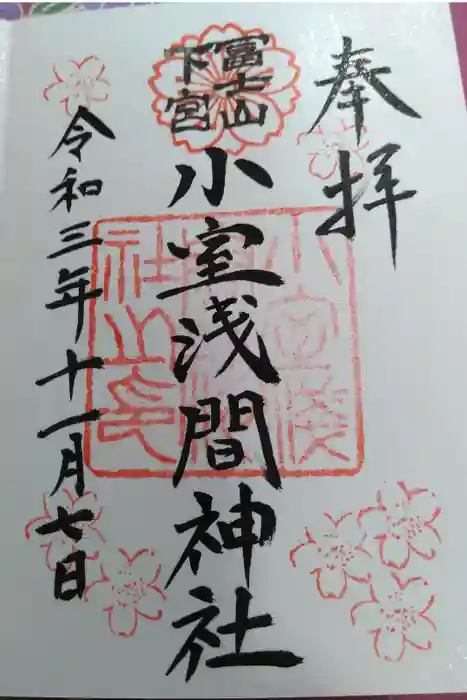 奉拝
冨士山
下宮
小室浅間神社
令和三年十一月七日